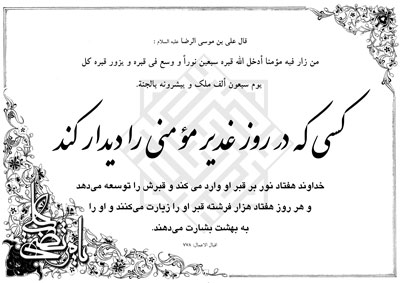 قال علی بن موسی الرضا علیه السلام :
من زار فیه مؤمنا أدخل الله قبره سبعین نوراً و وسع فی قبره و یزور قبره کل
یوم سبعون ألف ملک و یبشرونه بالجنة.
کسی که در روز غدیر مؤمنی را دیدار کند
خداوند هفتاد نور بر قبر او وارد می کند و قبرش را توسعه می‌دهد
و هر روز هفتاد هزار فرشته قبر او را زیارت می‌کنند و او را
به بهشت بشارت می‌دهند.
اقبال الاعمال: ۷۷۸
یا علی مرتضی